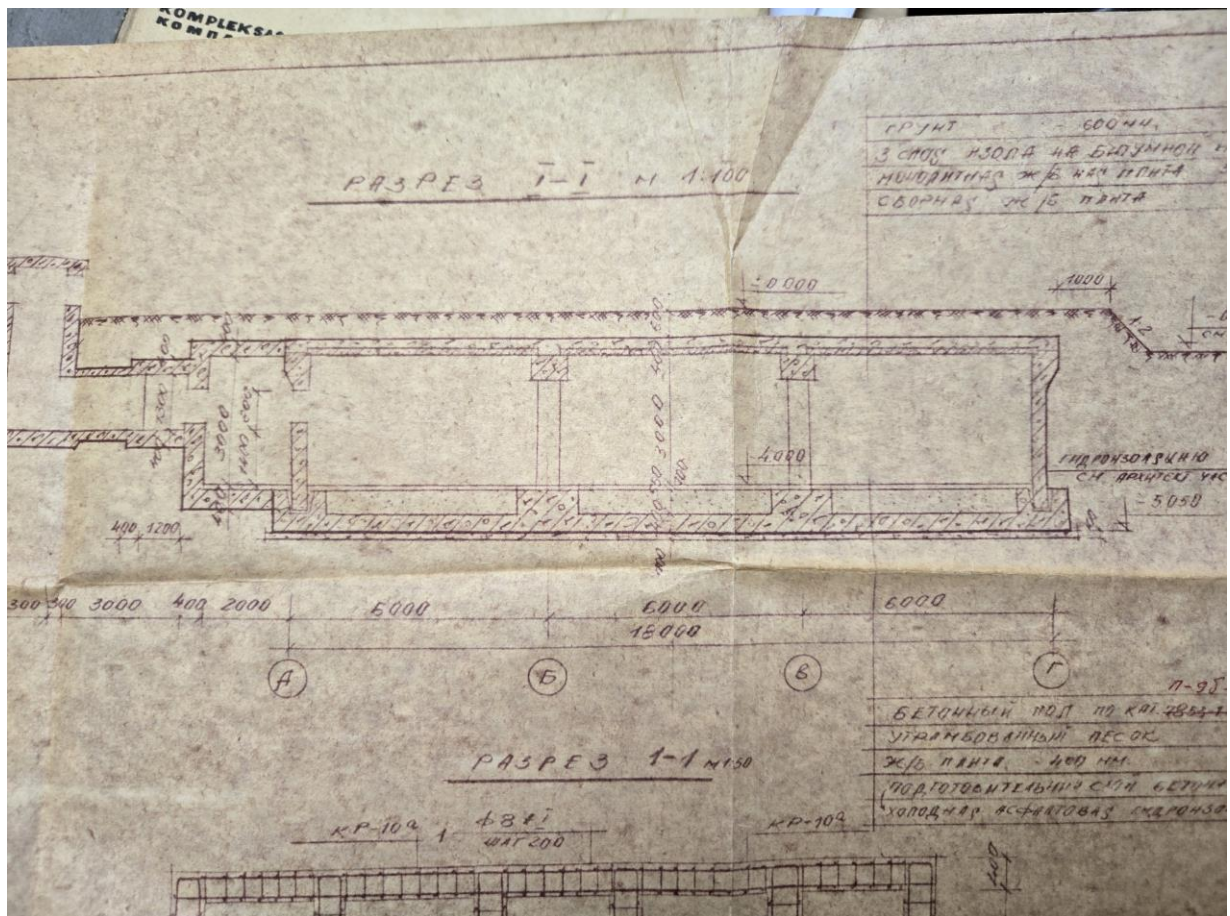 KOMPLEKSA
РАЗРЕЗ I-I М 1:100
ГРУНТ - 600 мм.
3 СЛОЯ ИЗОЛА НА БИТУМНОЙ
МОНОЛИТНАЯ Ж/Б ПЛИТА
СБОРНАЯ Ж/Б ПЛИТА
-0000
1000
1:2
600
400
3000
-4000
ГИДРОИЗОЛЯЦИЮ
СМ. АРХИТЕК ЧАС
-5050
3000
400 1200
100
300 300 3000 400 2000 6000 6000 6000
18000
А Б В Г
П-95
БЕТОННЫЙ ПОЛ ПО КАТ.
УТРАМБОВАННЫЙ ПЕСОК
Ж/Б ПЛИТА - 400 мм.
ПОДГОТОВИТЕЛЬНЫЙ СЛОЙ БЕТОНА
ХОЛОДНАЯ АСФАЛЬТОВАЯ ГИДРОИЗО
РАЗРЕЗ 1-1 М 1:50
КР-10а
ф8АI
ШАГ 200
КР-10а
400